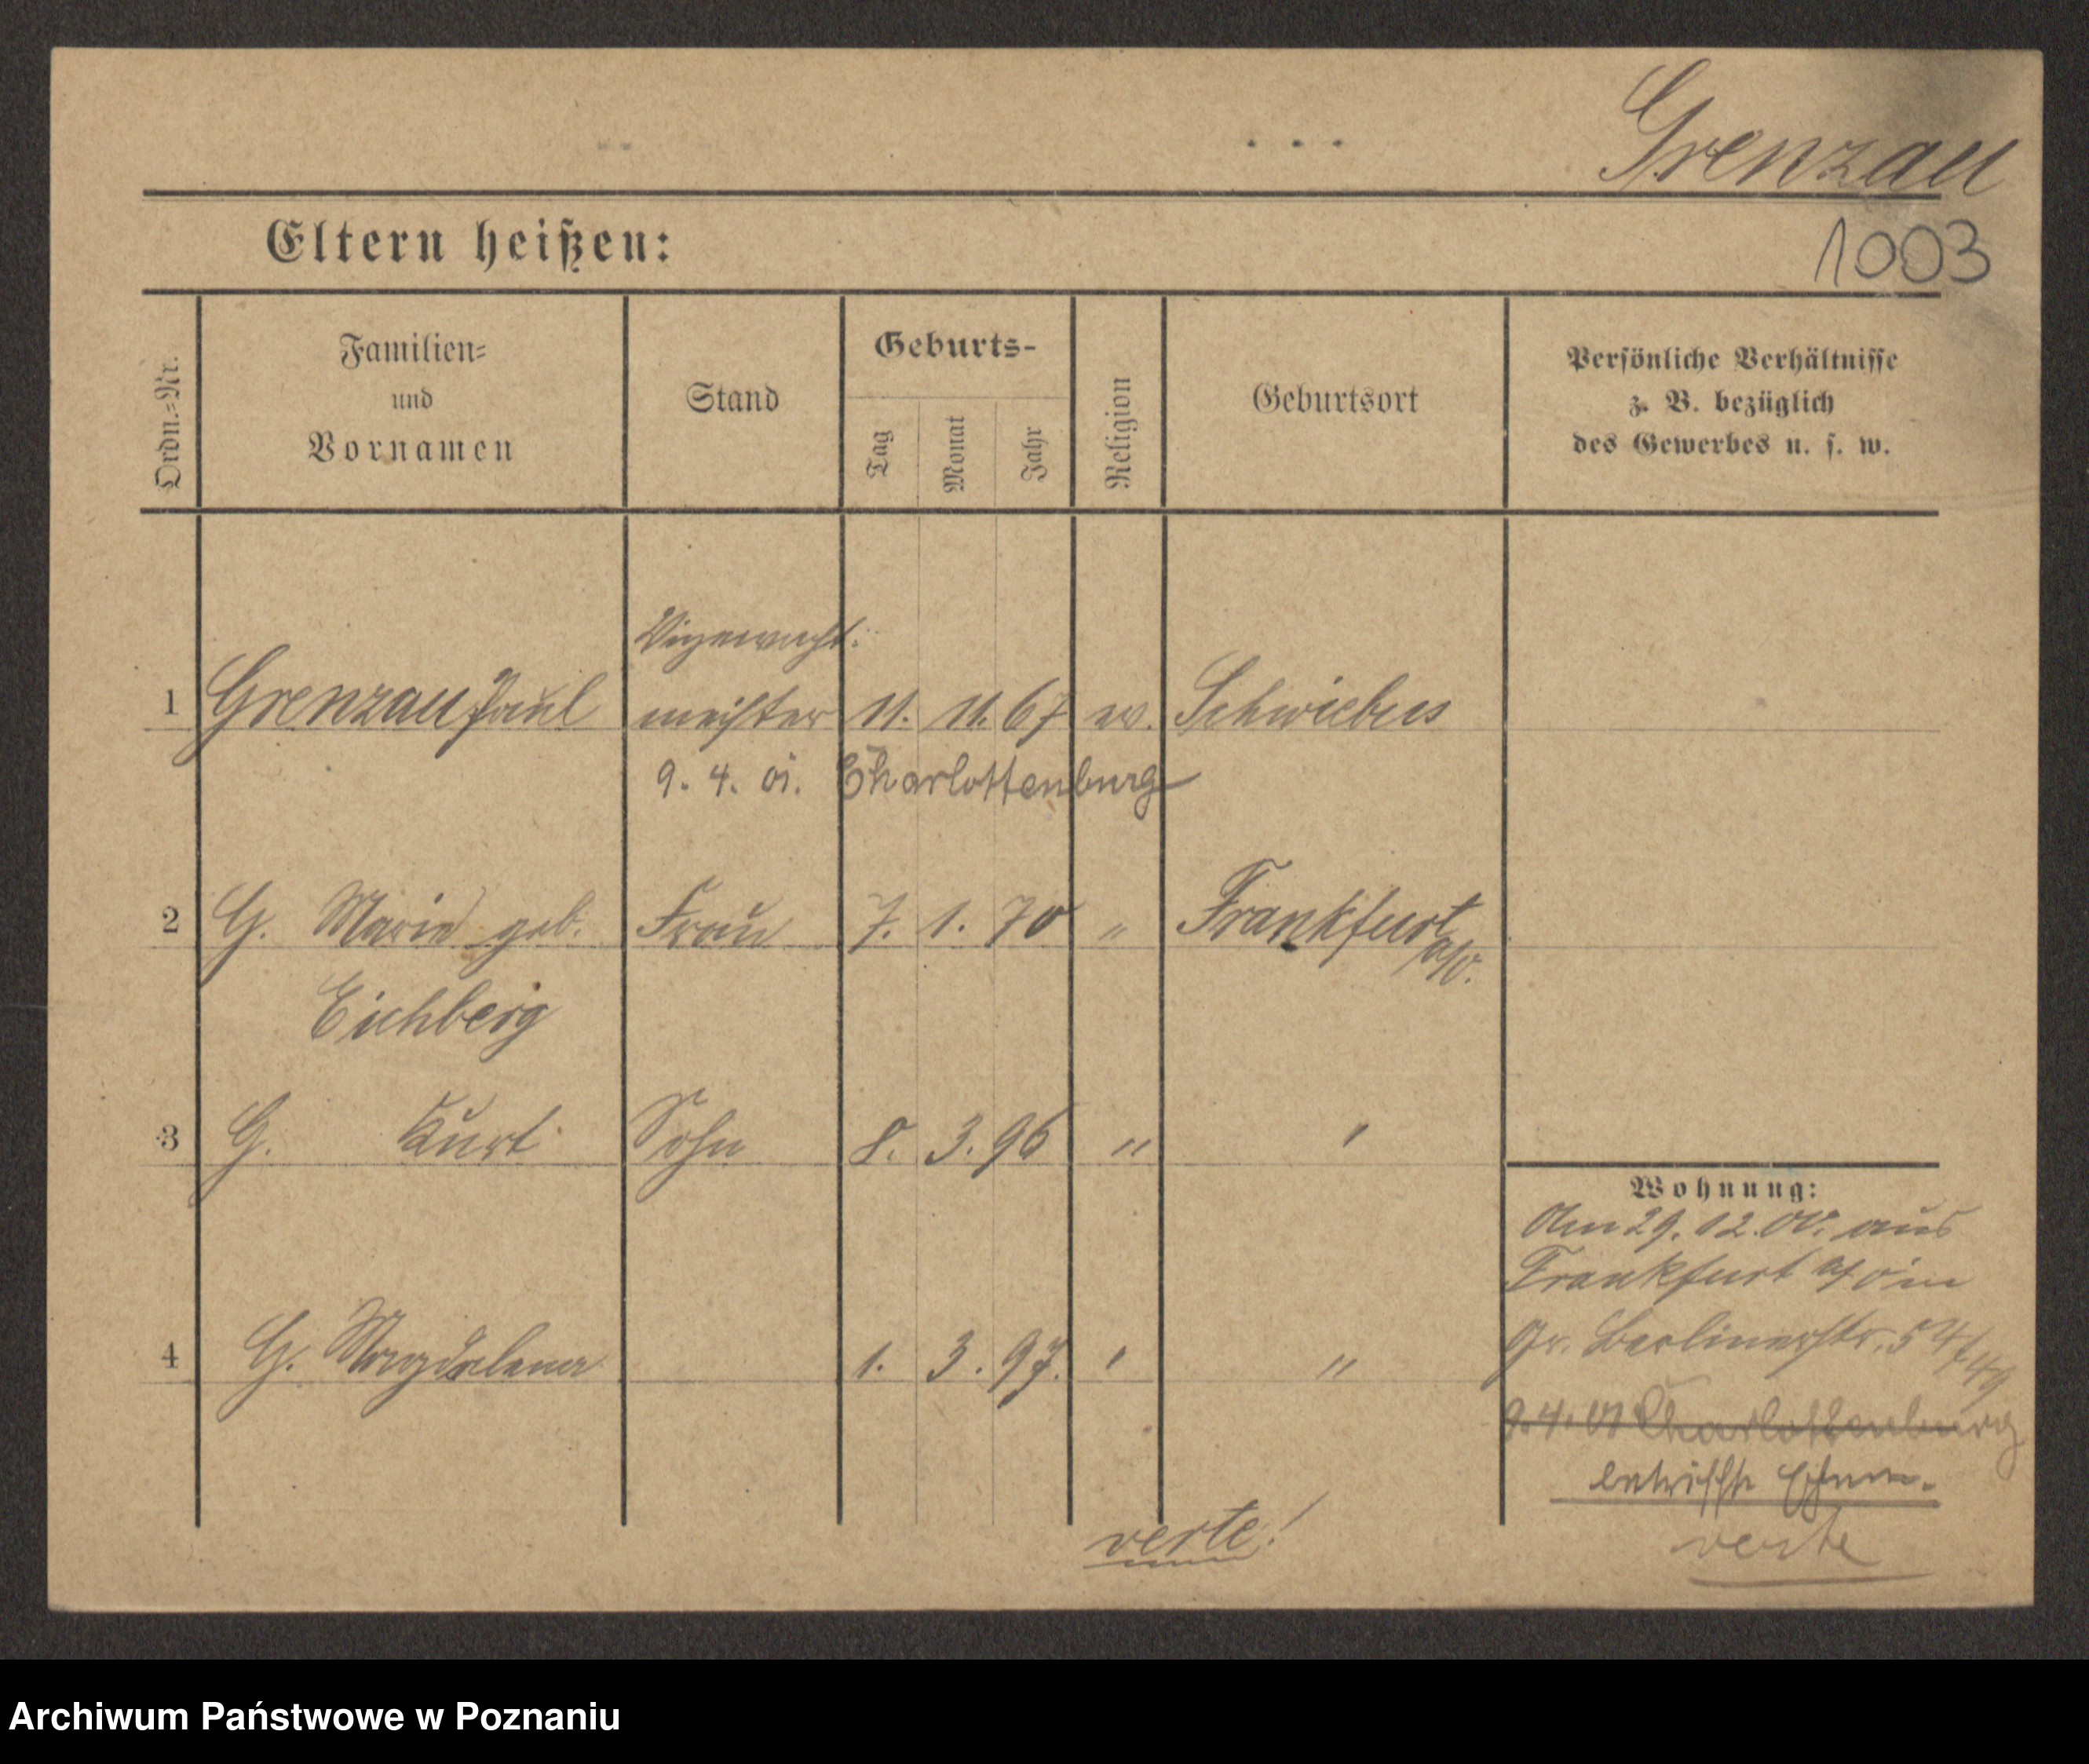 Grenzau
1003
Eltern heißen:
Ordn.=Nr.
Familien=
und
Vornamen
Stand
Geburts-
Tag
Monat
Jahr
Religion
Geburtsort
Persönliche Verhältnisse
z. B. bezüglich
des Gewerbes u. s. w.
Vizewacht:
1 Grenzau Paul meister 11. 11. 67 ev. Schwiebus
9. 4. 01. Charlottenburg
2 G. Marie geb. Frau 7. 1. 70 " Frankfurt a/O.
Eichberg
3 G. Kurt Sohn 8. 3. 96 " "
4 G. Magdalena 1. 3. 97. " "
Wohnung:
Am 29. 12. 00. aus
Frankfurt a/O in
Gr. Berlinerstr. 54/49
9. 4. 01 Charlottenburg
verte!
verte
Archiwum Państwowe w Poznaniu